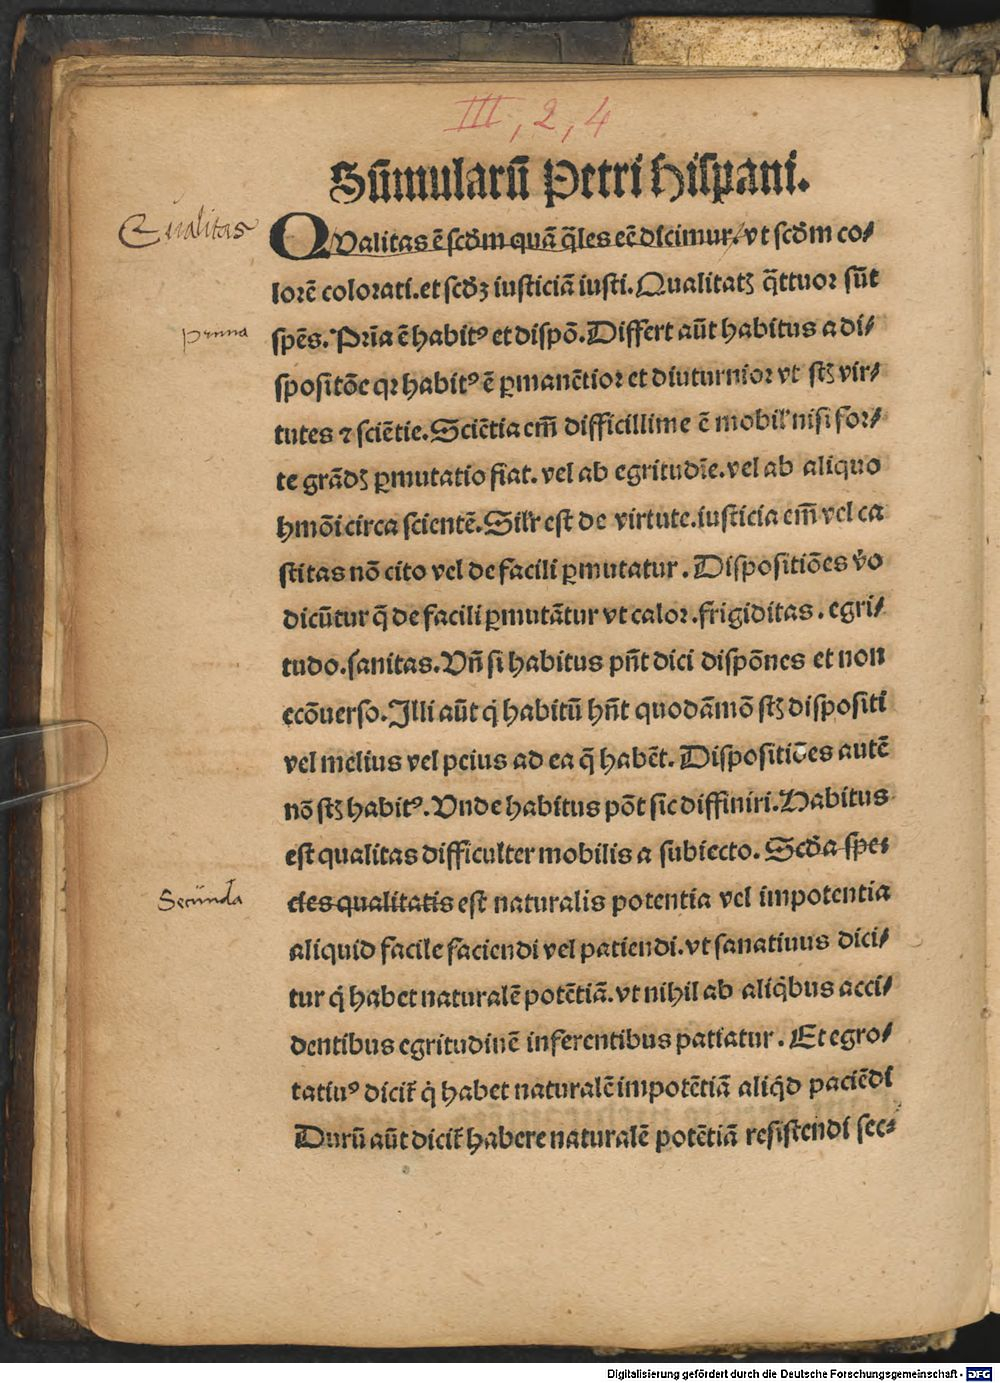 III, 2, 4
Sūmularū Petri Hispani.
Qualitas
QValitas ē scd̄m quā q̄les eē dicimur. vt scd̄m co⸗
lorē colorati. et scd̄ꝫ iusticiā iusti. Qualitatꝫ q̄ttuor sūt
prima
spēs. Prīa ē habitꝰ et dispō. Differt aūt habitus a di⸗
spositōe qꝛ habitꝰ ē ꝑmanētior et diuturnior vt sꝫ̄t vir⸗
tutes ⁊ sciētie. Sciētia em̄ difficillime ē mobil' nisi for⸗
te grādꝫ ꝑmutatio fiat. vel ab egritudīe. vel ab aliquo
hmōi circa scientē. Sil'r est de virtute. iusticia em̄ vel ca
stitas nō cito vel de facili ꝑmutatur. Dispositiōes v̄o
dicūtur q̄ de facili ꝑmutātur vt calor. frigiditas. egri⸗
tudo. sanitas. Vn̄ si habitus pn̄t dici dispōnes et non
ecōuerso. Illi aūt q̇ habitū hn̄t quodāmō st̄ꝫ dispositi
vel melius vel peius ad ea q̄ habēt. Dispositiōes autē
nō st̄ꝫ habitꝰ. Vnde habitus pōt sic diffiniri. Habitus
est qualitas difficulter mobilis a subiecto. Scd̄a spe⸗
Secūnda
cies qualitatis est naturalis potentia vel impotentia
aliquid facile faciendi vel patiendi. vt sanatiuus dici⸗
tur q̇ habet naturalē potētiā. vt nihil ab aliq̇bus acci⸗
dentibus egritudinē inferentibus patiatur. Et egro⸗
tatiuꝰ dicit̄ q̇ habet naturalē impotētiā aliq̇d paciēdi
Durū aūt dicit̄ habere naturalē potētiā resistendi sec⸗
Digitalisierung gefördert durch die Deutsche Forschungsgemeinschaft - DFG